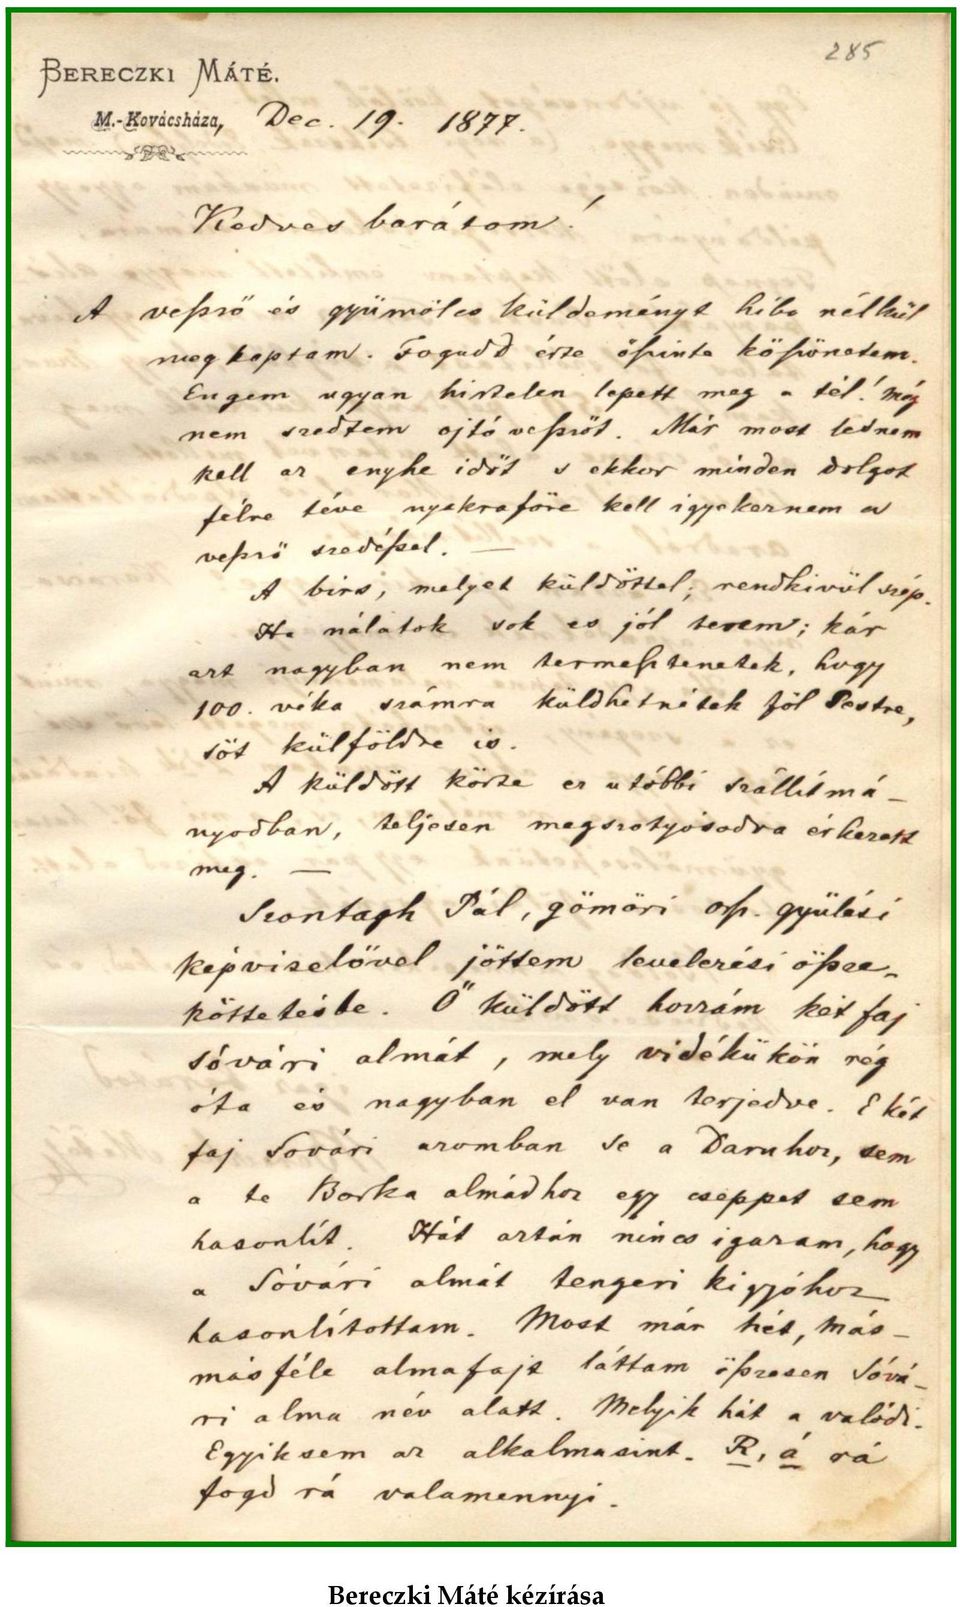 285
BERECZKI MÁTÉ.
M.-Kovácsháza, Dec. 19. 1877.
Kedves barátom!
A veſsző és gyümölcs küldeményt hiba nélkül
megkaptam. Fogadd érte őſzinte köſzönetem.
Engem ugyan hirtelen lepett meg a tél! Még
nem szedtem ojtó veſszőt. Már most lesnem
kell az enyhe időt s ekkor minden dolgot
félre téve nyakrafőre kell igyekeznem a
veſsző szedéſsel. —
A birs, melyet küldöttél, rendkivül szép.
Ha nálatok sok es jól terem; kár
azt nagyban nem termeſztenetek, hogy
100. véka számra küldhetnétek föl Pestre,
söt külföldre is.
A küldött körte ez utóbbi szállítmá-
nyodban, teljesen megszotyósodva érkezett
meg. —
Szontagh Pál, gömöri orſz. gyülési
képviselővel jöttem levelezési öſsze-
köttetésbe. Ő küldött hozzám két faj
sóvári almát, mely vidékükön rég
óta és nagyban el van terjedve. E két
faj Sovári azomban se a Daruhoz, sem
a te Borka almádhoz egy cseppet sem
hasonlít. Hát aztán nincs igazam, hogy
a Sóvári almát tengeri kigyóhoz
hasonlítottam. Most már hét, más-
másféle almafajt láttam öſszesen Sóvá-
ri alma név alatt. Melyik hát a valódi.
Egyiksem az alkalmasint. R, á rá
fogd rá valamennyi.
Bereczki Máté kézírása